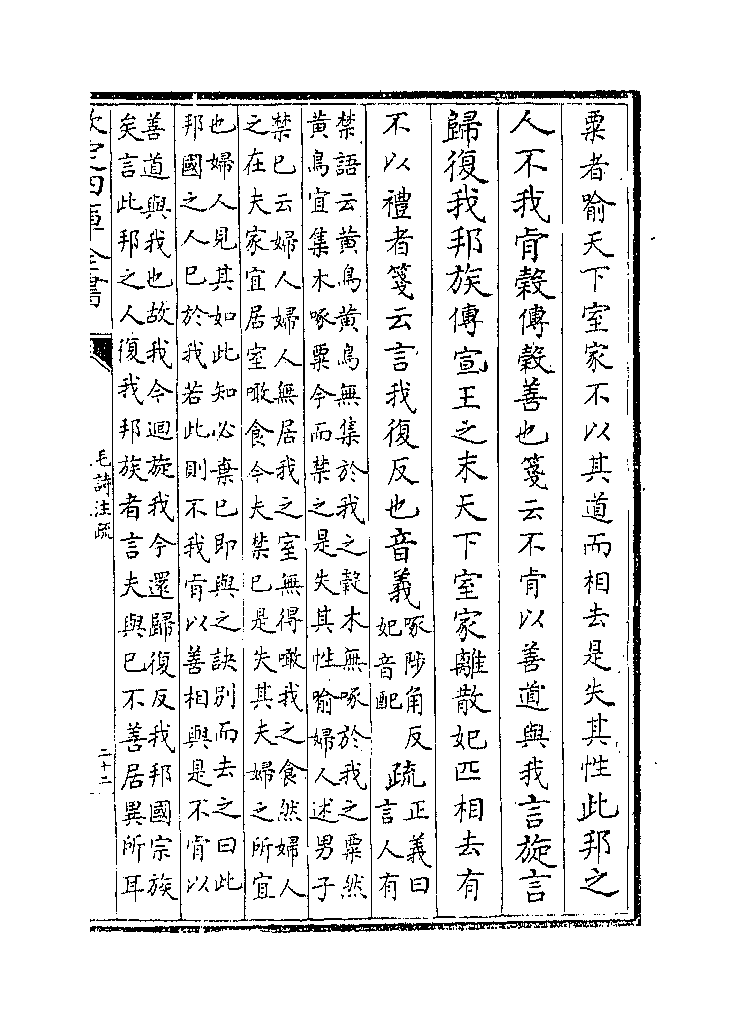 粟者喻天下室家不以其道而相去是失其性此邦之
人不我肯榖傳榖善也箋云不肯以善道與我言旋言
歸復我邦族傳宣王之末天下室家離散妃匹相去有
不以禮者箋云言我復反也音義
啄陟角反
妃音配
疏
正義曰
言人有
禁語云黄鳥黄鳥無集於我之榖木無啄於我之粟然
黄鳥宜集木啄粟今而禁之是失其性喻婦人述男子
禁已云婦人婦人無居我之室無得噉我之食然婦人
之在夫家宜居室噉食今夫禁已是失其夫婦之所宜
也婦人見其如此知必棄已即與之訣別而去之曰此
邦國之人已於我若此則不我肯以善相與是不肯以
善道與我也故我今迴旋我今還歸復反我邦國宗族
矣言此邦之人復我邦族者言夫與已不善居異所耳
欽定四庫全書
毛詩注疏
二十二